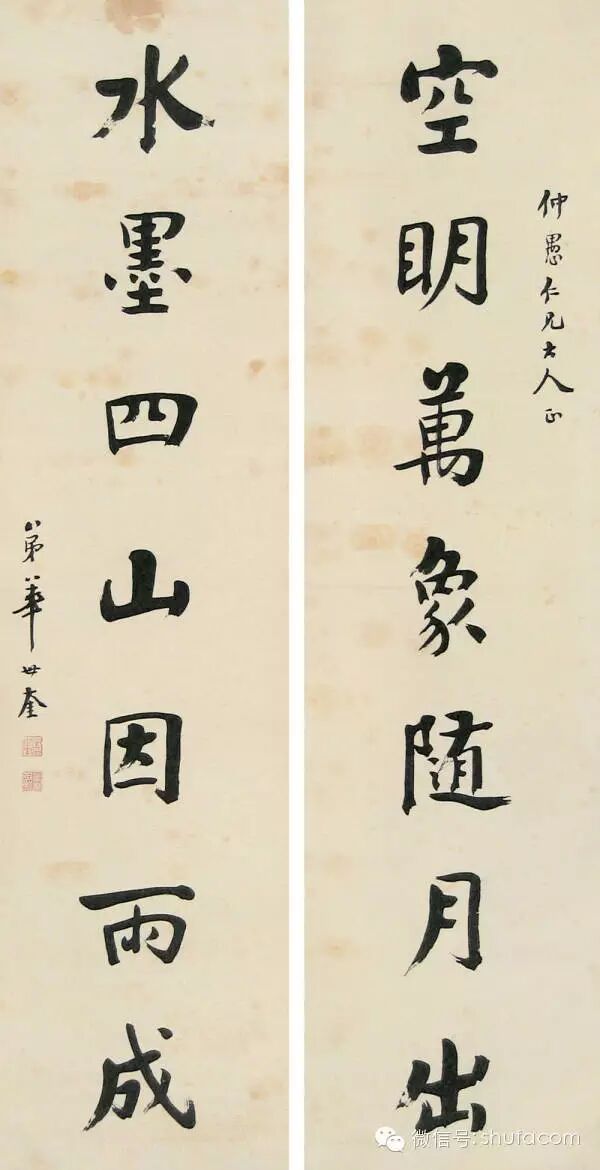 仲愚仁兄大人正
空明萬象隨月出
水墨四山因雨成
弟華世奎
微信号:shufacom